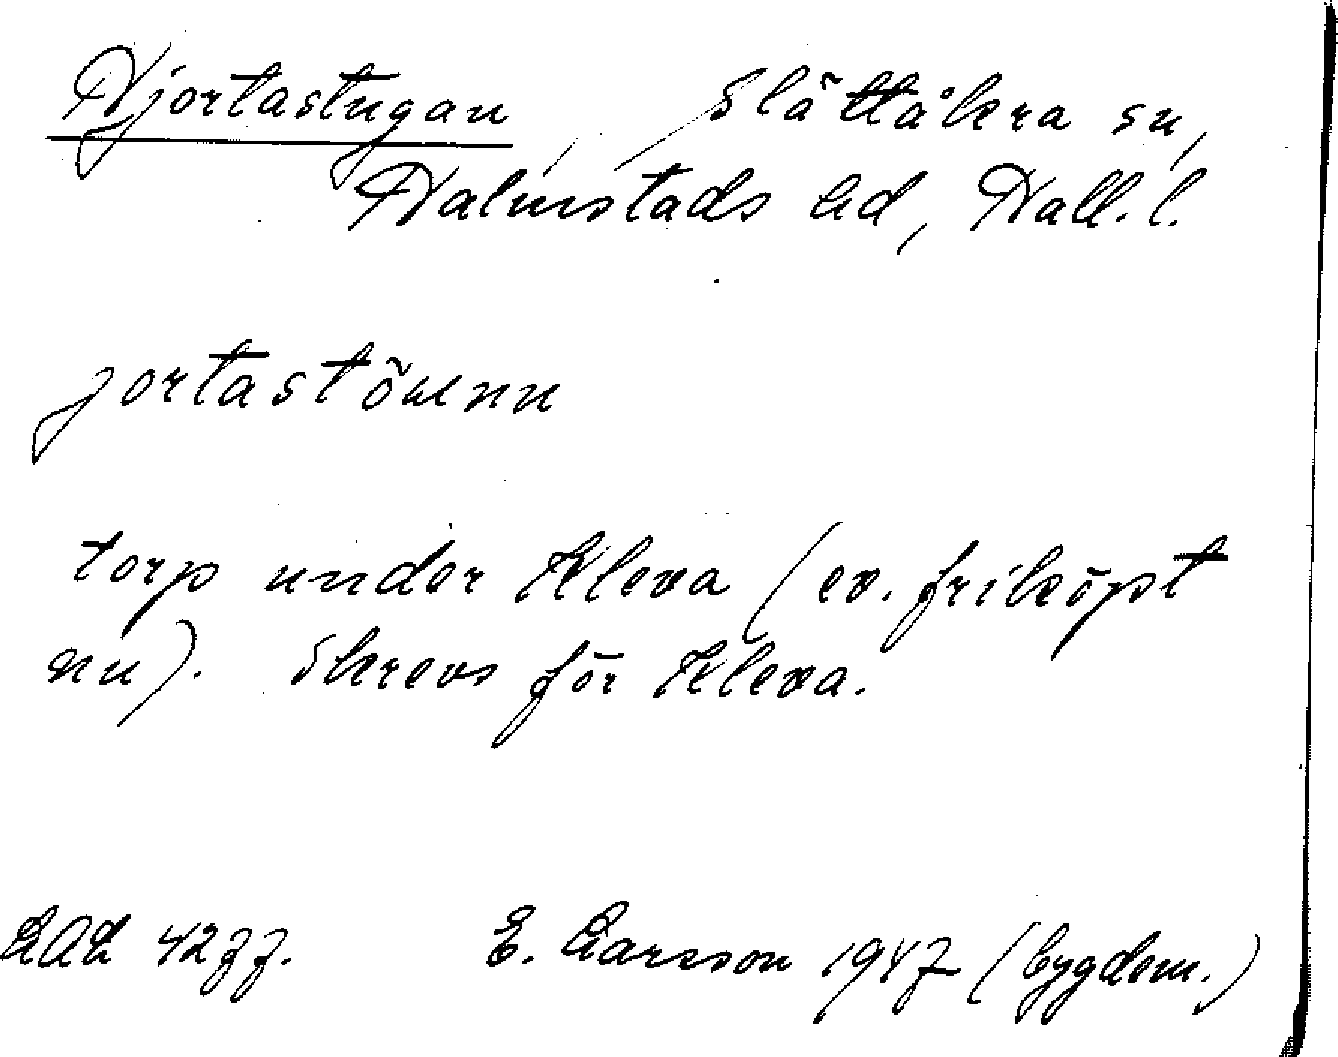 Hjortastugan, Slättåkra sn,
Halmstads hd, Hall. l.
jortastöwnn
torp under Kleva (ev. friköpt
nu). Skrevs för Kleva.
LAL 4277. E. Larsson 1947 (bygdem.)